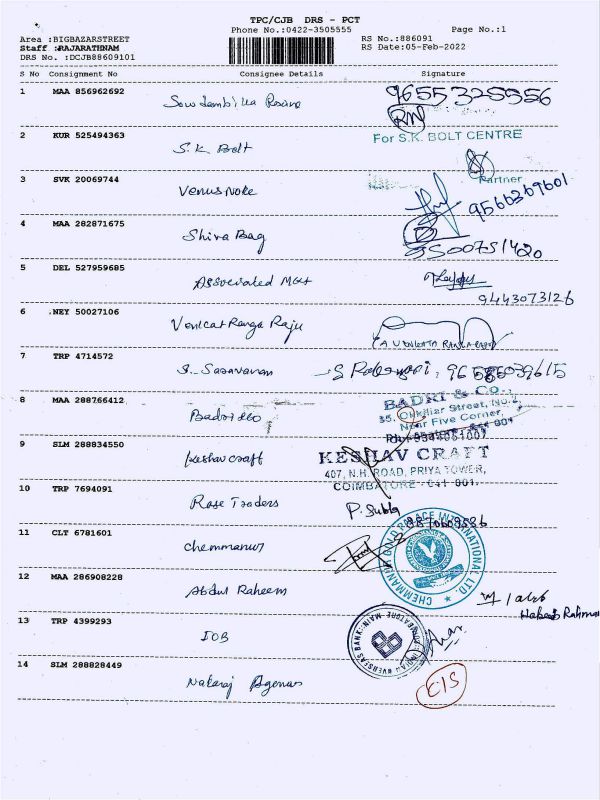 TPC/CJB DRS - PCT
Phone No.:0422-3505555
Page No.:1
Area :BIGBAZARSTREET
RS No.:886091
Staff :RAJARATHNAM
RS Date:05-Feb-2022
DRS No. :DCJB88609101
S No Consignment No Consignee Details Signature
1 MAA 856962692
9655325556
RN
2 KUR 525494363 S.K. Bolt
For S.K. BOLT CENTRE
Partner
3 SVK 20069744 Venus Note
9566369601
4 MAA 282871675 Shiva Bag
9500751420
5 DEL 527959685 Associated
9443073126
6 .NEY 50027106 Venkat Ranga Raju
(A VENKATA RANGA RAJU)
7 TRP 4714572 S. Saravanan
8 MAA 288766412
BADRI & Co.,
35, Okkiliar Street, No.2,
Near Five Corner,
9 SLM 288834550 Keshav craft
KESHAV CRAFT
407, N.H. ROAD, PRIYA TOWER,
COIMBATORE - 641 001.
10 TRP 7694091 Rose Traders
P. Subba
11 CLT 6781601 Chemmanur
CHEMMANUR GOLD PALACE INTERNATIONAL LTD.
12 MAA 286908228 Abdul Raheem
13 TRP 4399293 IOB
INDIAN OVERSEAS BANK MAIN COIMBATORE
14 SLM 288828449 Nataraj Agencies
EIS